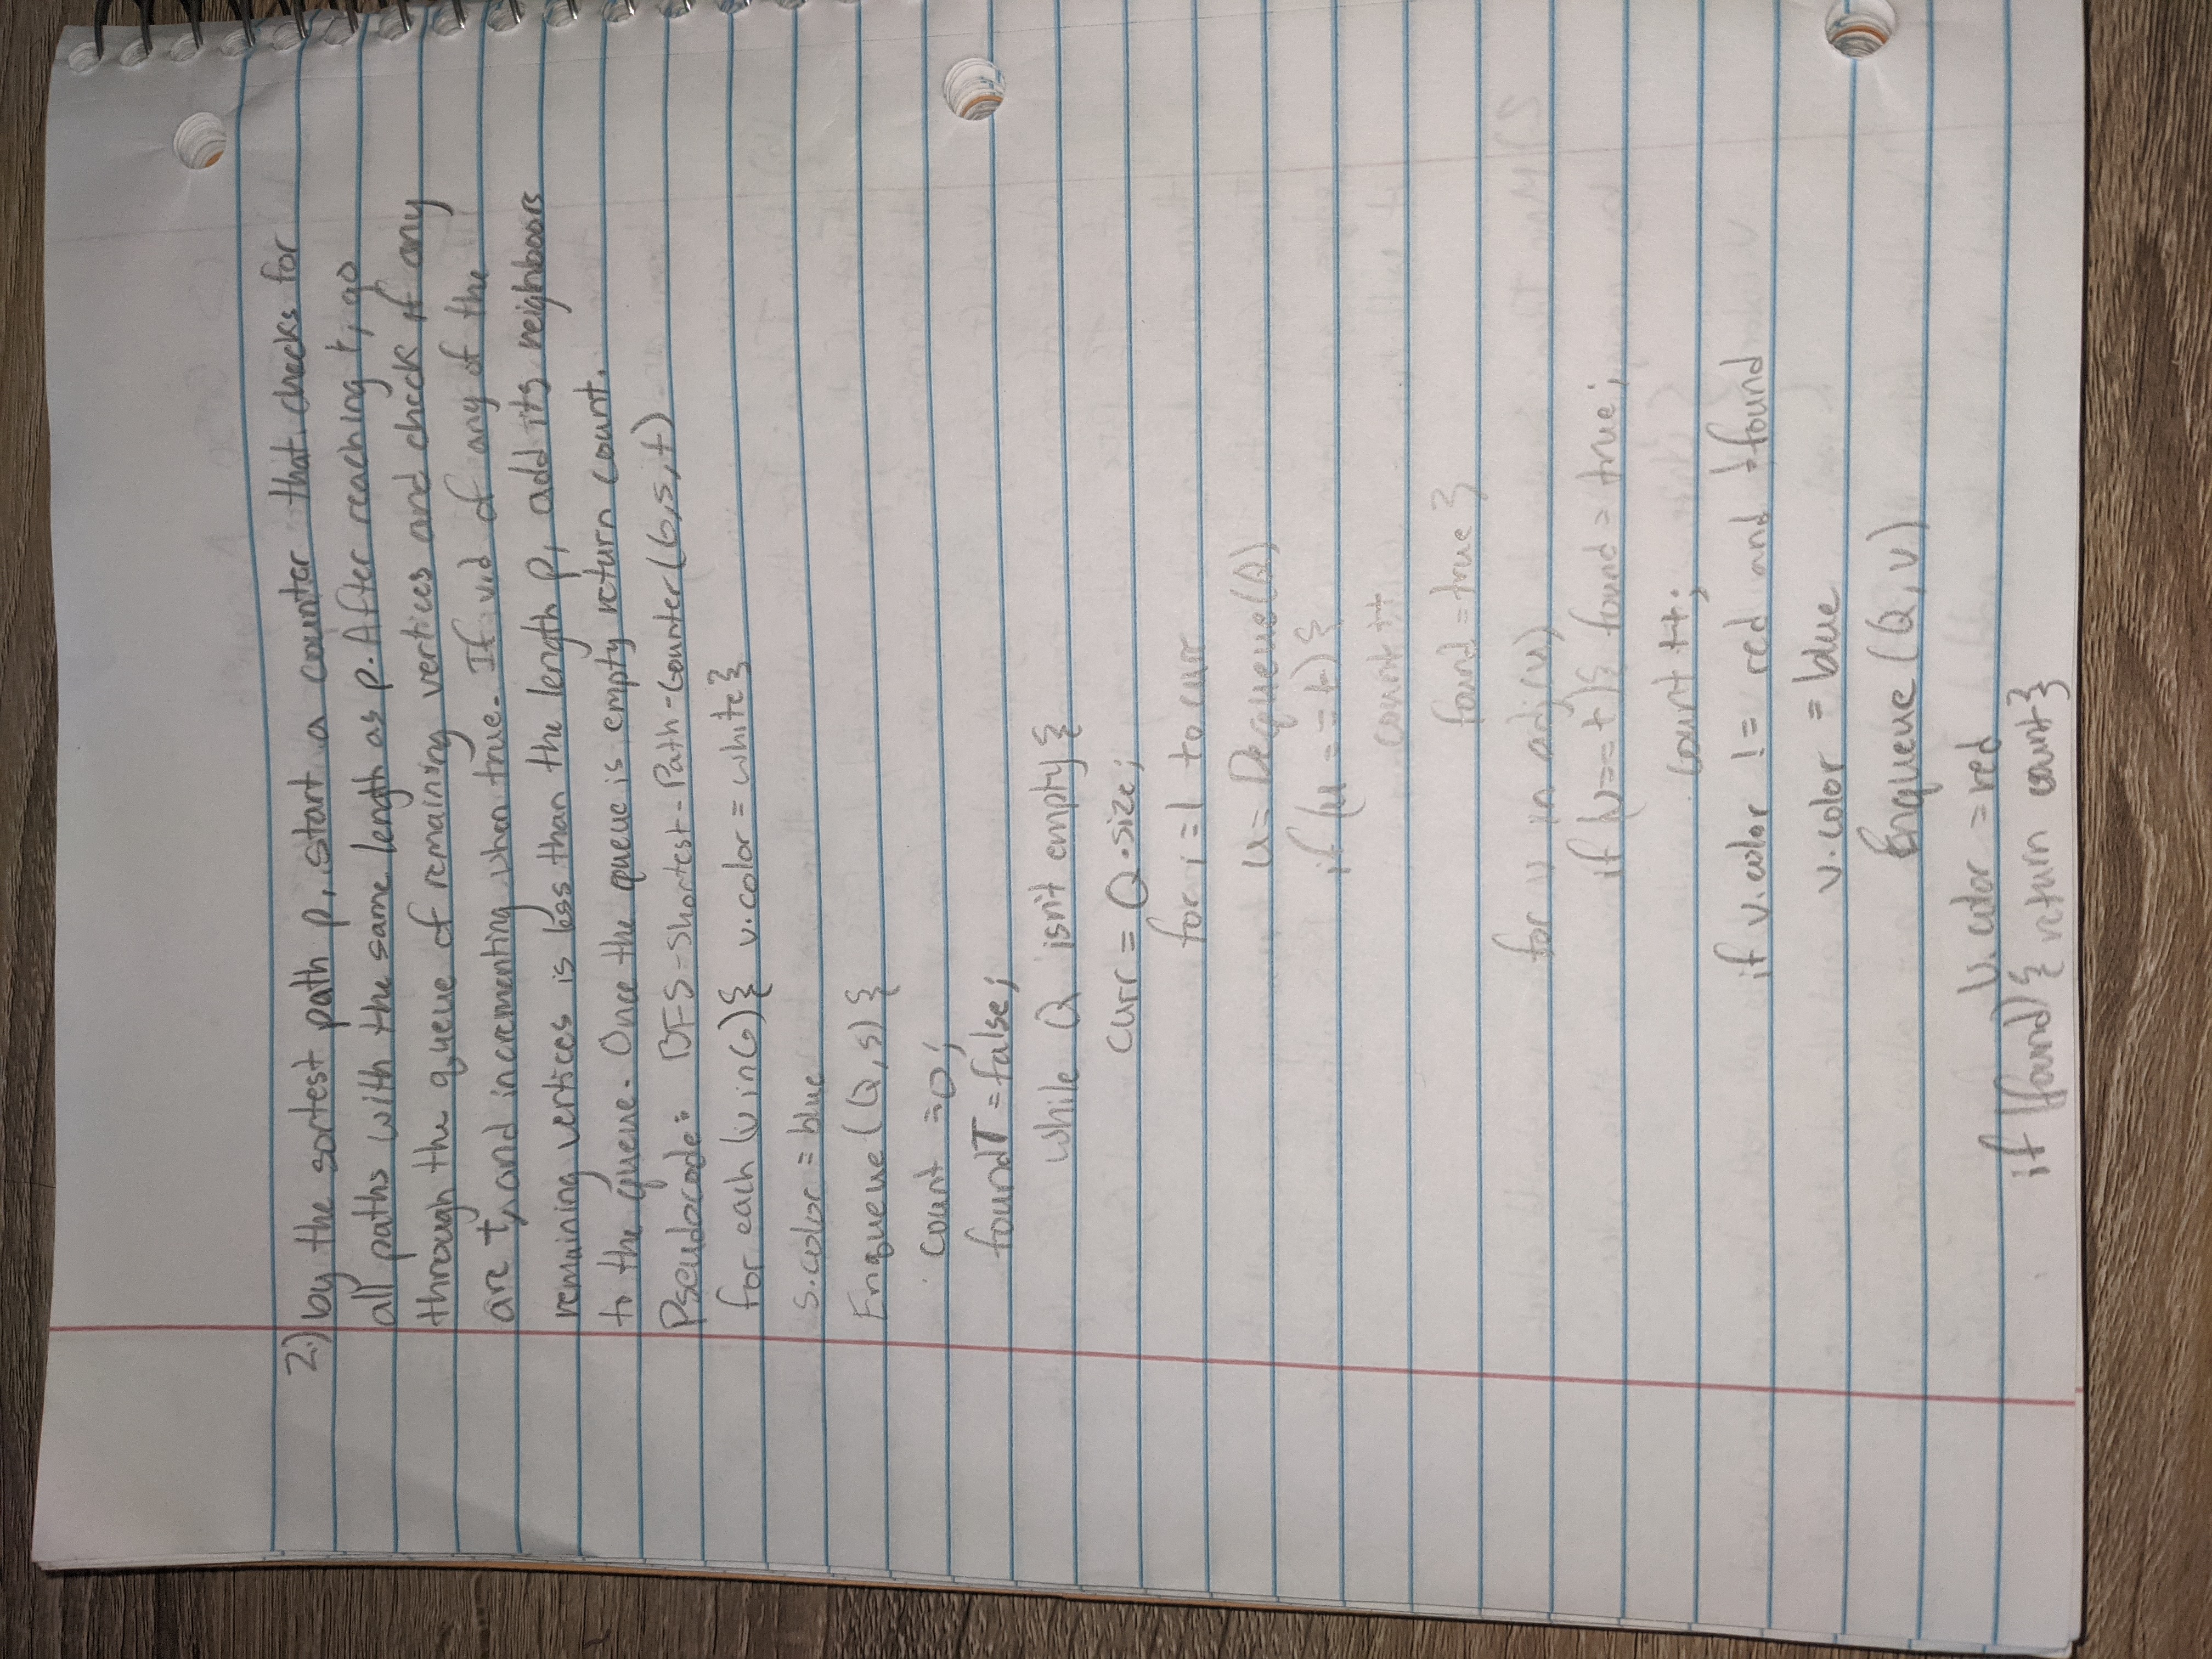 2.) by the sortest path p, start a counter that checks for
all paths with the same length as p. After reaching t, go
through the queue of remaining vertices and check if any
are t, and incrementing when true. If v.d of any of the
remaining vertices is less than the length p, add its neighbors
to the queue. Once the queue is empty return count.
Pseudocode: BFS-Shortest-Path-Counter(G,s,t)
for each (v in G) { v.color = white }
s.color = blue
Enqueue (Q, s) {
count = 0;
foundT = false;
while Q isn't empty {
curr = Q.size;
for i = 1 to curr
u = Dequeue(Q)
if (u == t) {
count ++
found = true }
for v in adj(u)
if (v == t) { found = true;
count ++;
if v.color != red and !found
v.color = blue
Enqueue (Q, v)
u.color = red
if (found) { return count }